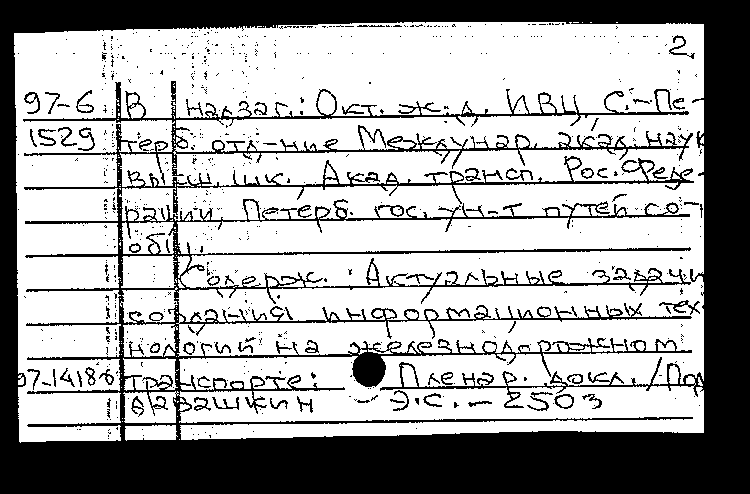 2.
97-6 В надзаг.: Окт. ж. д. ИВЦ, С.-Пе-
1529 терб. отд-ние Междунар. акад. наук
высш. шк., Акад. трансп. Рос. Феде-
рации, Петерб. гос. ун-т путей со-
общ.
Содерж.: Актуальные задачи
создания информационных тех-
нологий на железнодорожном
97-14186 транспорте: Пленар. докл. / Под
Э.С. - 2503